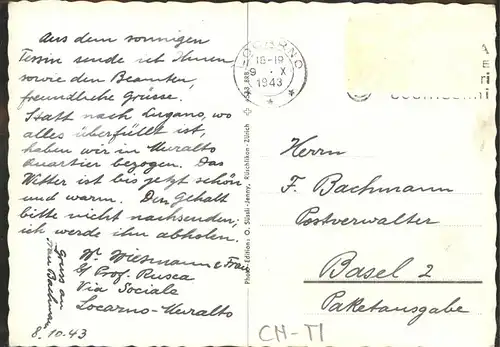 Aus dem sonnigen
Tessin sende ich Ihnen
sowie den Beamten,
freundliche Grüsse.
Statt nach Lugano, wo
alles überfüllt ist,
haben wir in Muralto
Quartier bezogen. Das
Wetter ist bis jetzt schön
und warm. Den Gehalt
bitte nicht nachsenden,
ich werde ihn abholen.
W. Wiesmann & Frau
c/ Prof. Rusca
Via Sociale
Locarno-Muralto
Gruss an
Frau Bachmann
8.10.43
LOCARNO
18-19
9. X
1943
Photo-Edition: O. Süssli-Jenny, Rüschlikon-Zürich
Herrn
F. Bachmann
Postverwalter
Basel 2
Paketausgabe
CH-TI